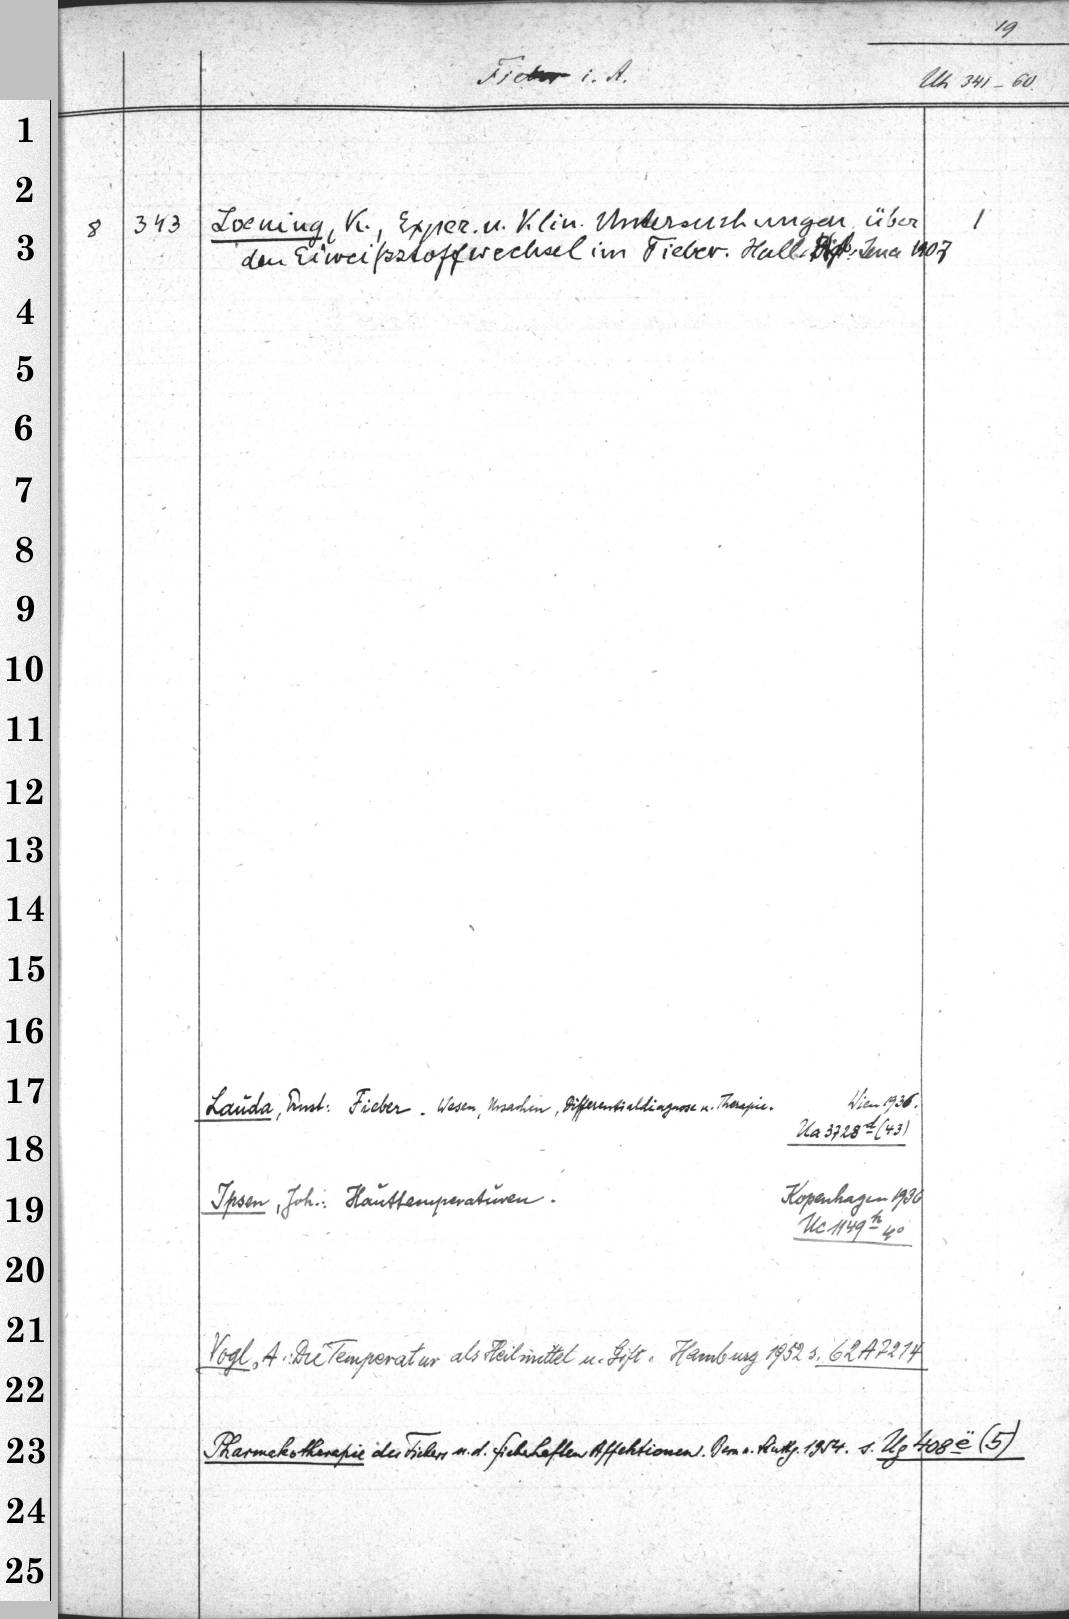 19
Fieber i. A. Uh 341-60
1
2
8 343 Loening, K., Exper. u. Klin. Untersuchungen über 1
3
den Eiweißstoffwechsel im Fieber. Hall. Jena 1907
4
5
6
7
8
9
10
11
12
13
14
15
16
17
Lauda, Ernst: Fieber. Wesen, Ursachen, Differentialdiagnose u. Therapie. Wien 1936.
Ua 3728 d (43)
18
Ipsen, Joh.: Hauttemperaturen. Kopenhagen 1936
19
Uc 1149 h 4°
20
21
Vogl, A.: Die Temperatur als Heilmittel u. Gift. Hamburg 1952 s. 62 A 7214
22
23 Pharmakotherapie des Fiebers u. d. fieberhaften Affektionen. Bern u. Stuttg. 1954. s. Ug 408 e (5)
24
25